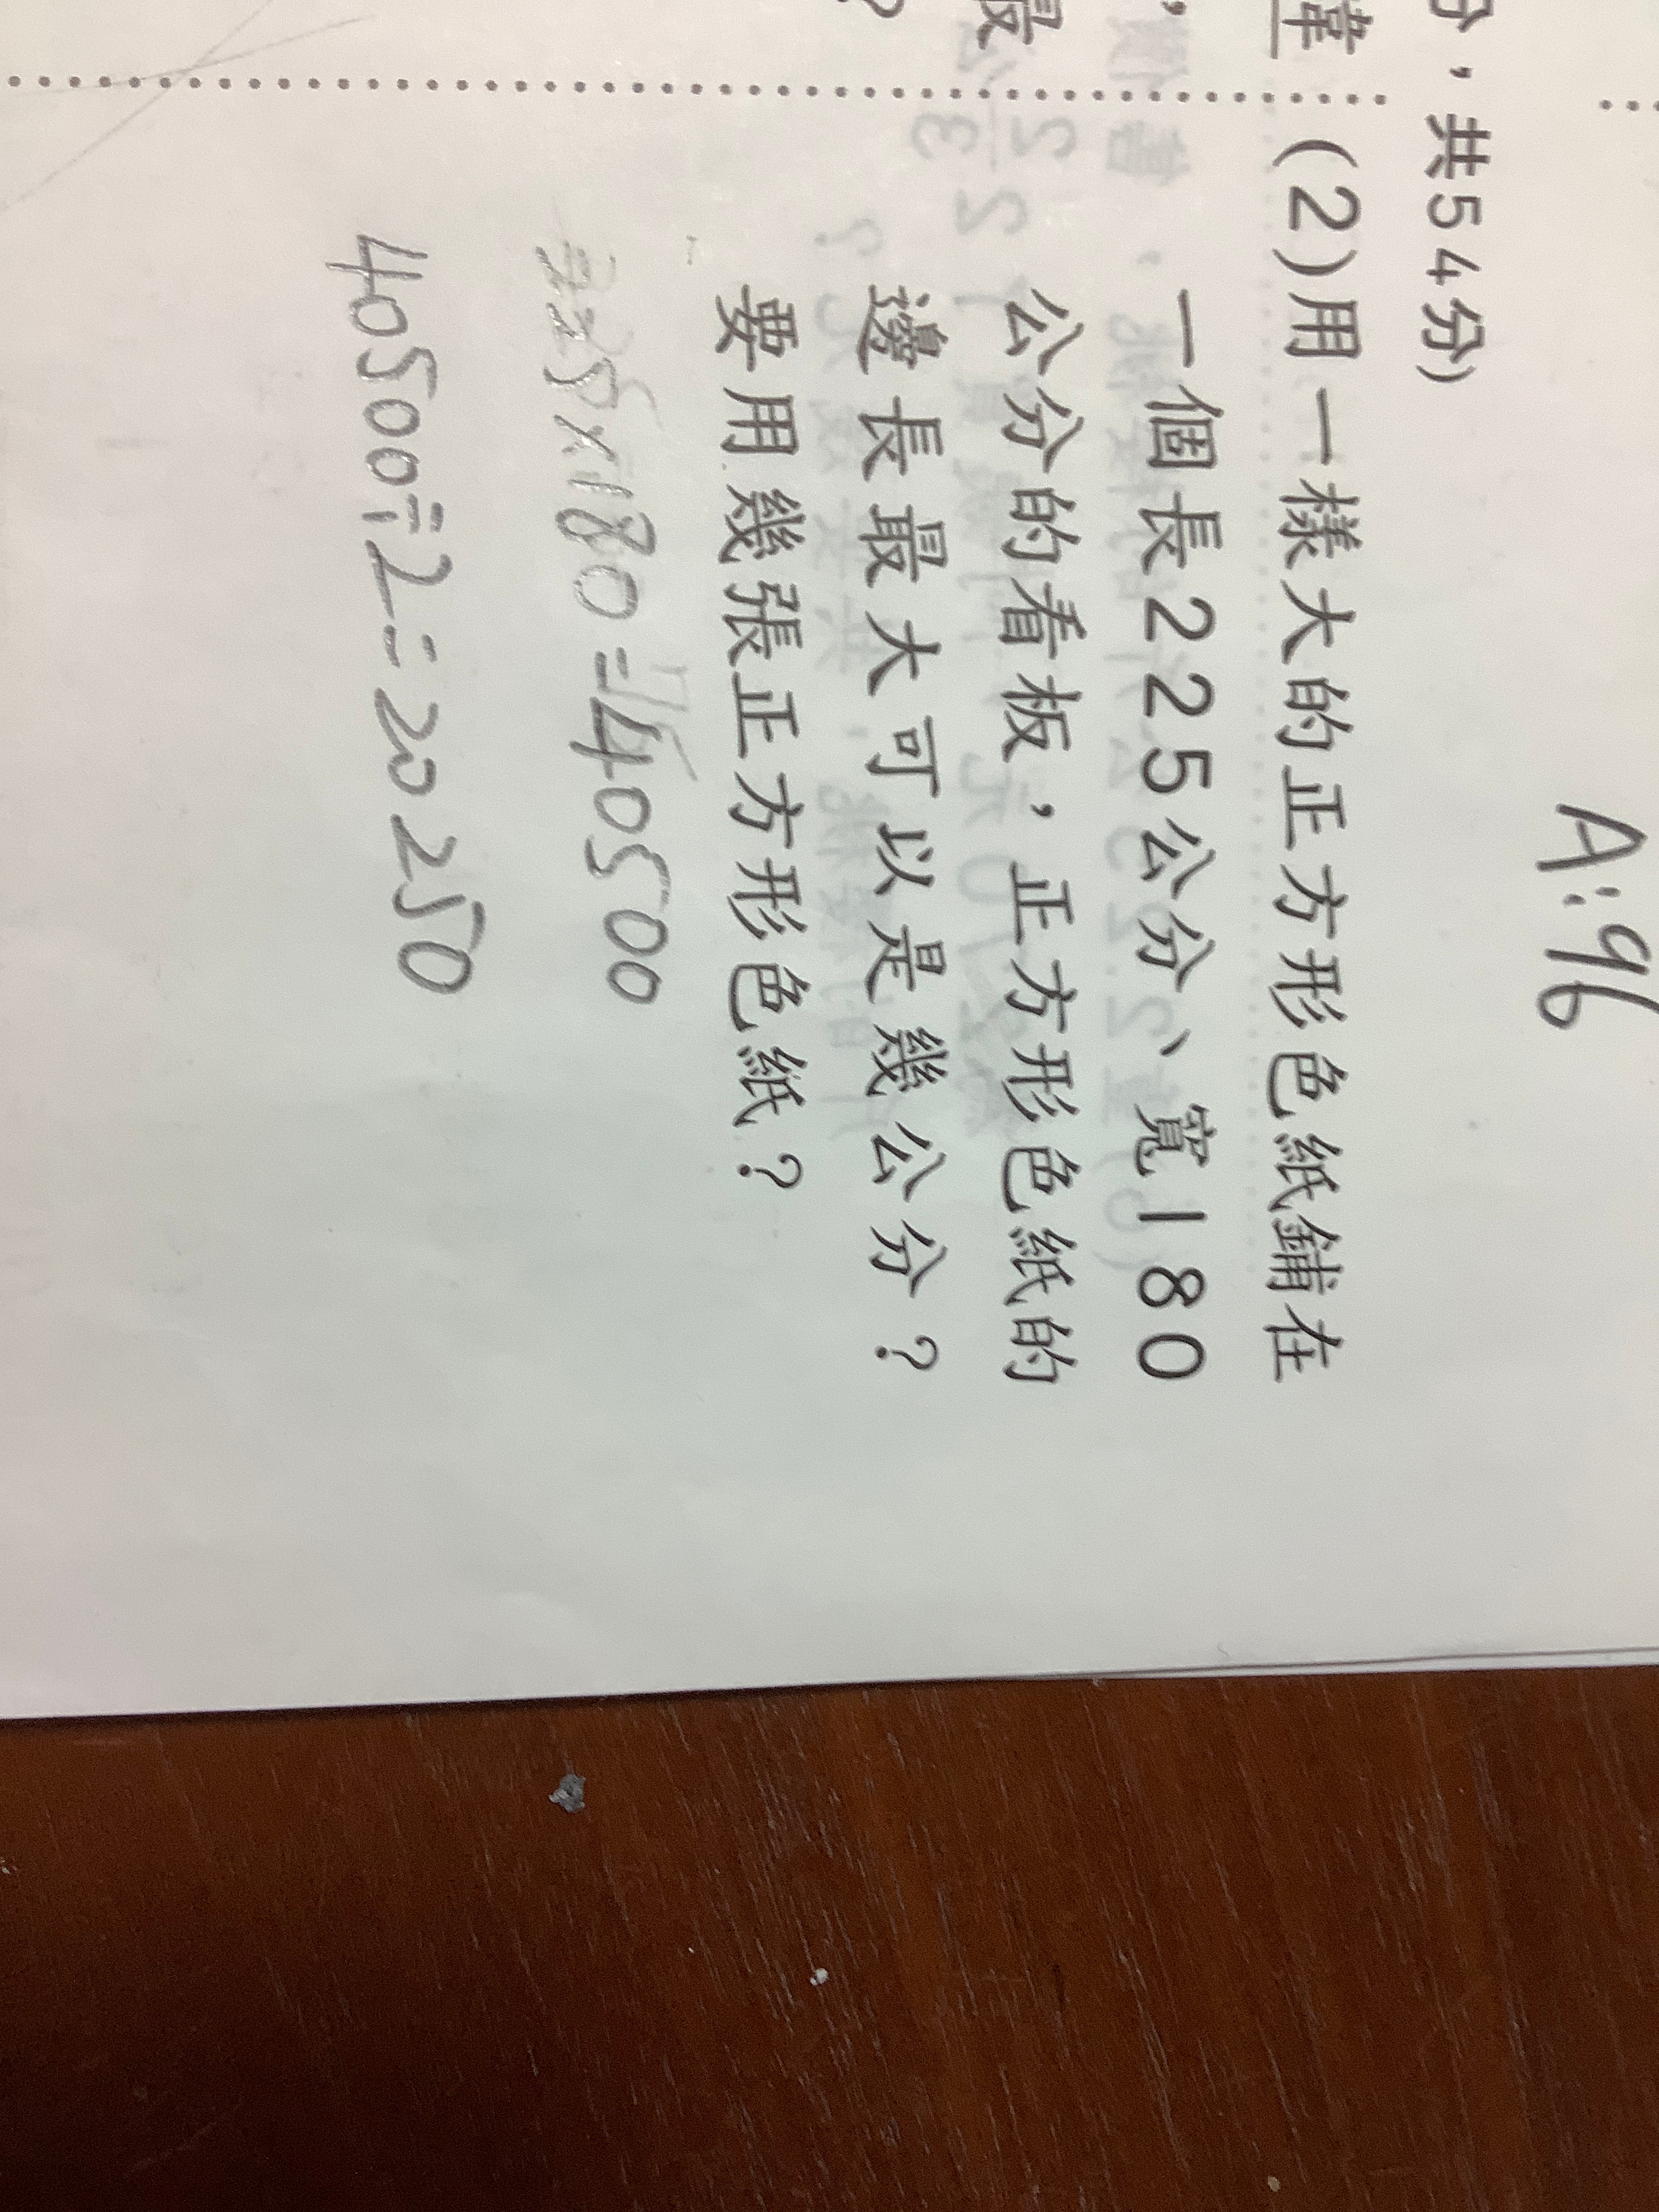 A:96
分,共54分)
(2)用一樣大的正方形色紙鋪在
一個長225公分、寬180
公分的看板,正方形色紙的
邊長最大可以是幾公分?
要用幾張正方形色紙?
225×180=40500
40500÷2=20250
韋
,
最
?